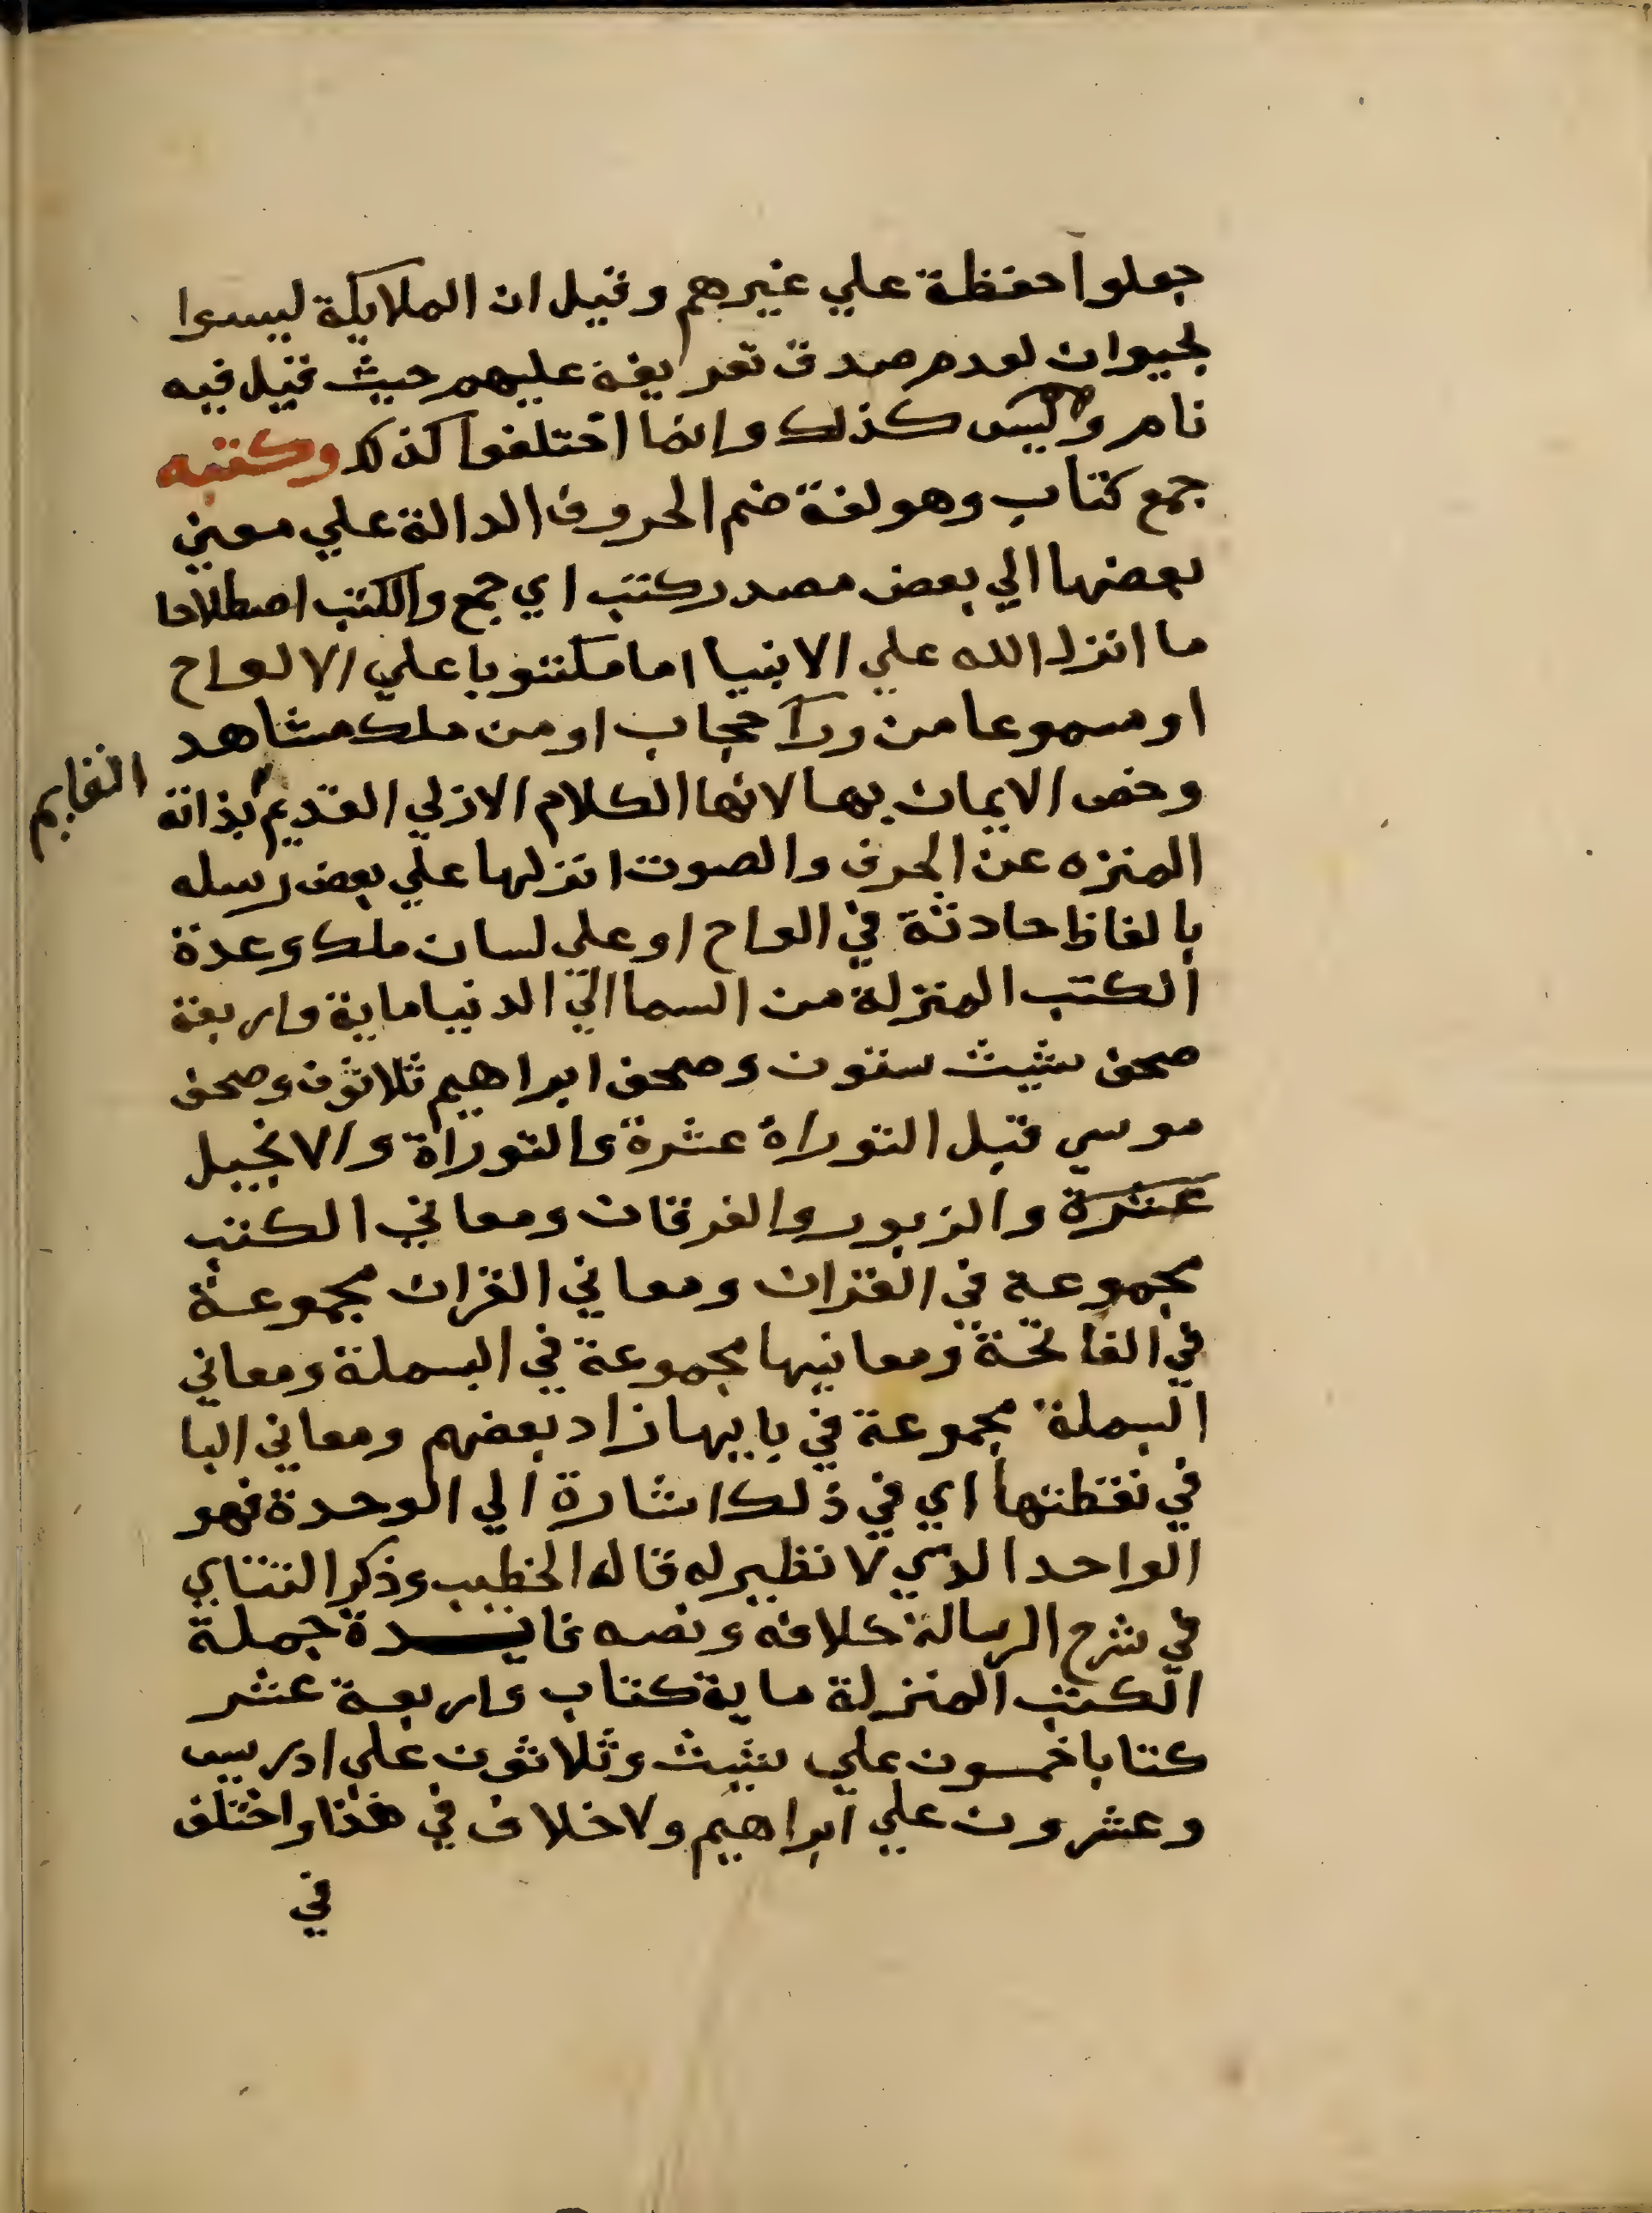 جعلوا حفظة علي غيرهم وقيل ان الملايكة ليسوا
بحيوان لعدم صدق تعريفه عليهم حيث قيل فيه
نام وليس كذلك وانما اختلفوا كذلك وكتبه
جمع كتاب وهو لغة ضم الحروف الدالة علي معني
بعضها الي بعض مصدر كتب اي جمع والكتب اصطلاحا
ما انزل الله علي الانبيا اما مكتوبا علي الالواح
او مسموعا من ورآ حجاب او من ملك مشاهد
وخص الايمان بها لانها الكلام الازلي القديم بذاته
القايم
المنزه عن الحرف والصوت انزلها علي بعض رسله
بالفاظ حادثة في الواح او علي لسان ملك وعدة
الكتب المنزلة من السما الي الدنيا ماية واربعة
صحف شيث ستون وصحف ابراهيم ثلاثون وصحف
موسي قبل التوراة عشرة والتوراة والانجيل
عشرة والزبور والفرقان ومعاني الكتب
مجموعة في القران ومعاني القران مجموعة
في الفاتحة ومعانيها مجموعة في البسملة ومعاني
البسملة مجموعة في بايها زاد بعضهم ومعاني البا
في نقطتها اي في ذلك اشارة الي الوحدة فهو
الواحد الذي لا نظير له قاله الخطيب وذكر التتاي
في شرح الرسالة خلافه ونصه فايدة جملة
الكتب المنزلة ماية كتاب واربعة عشر
كتابا خمسون علي شيث وثلاثون علي ادريس
وعشرون علي ابراهيم ولا خلاف في هذا واختلف
في